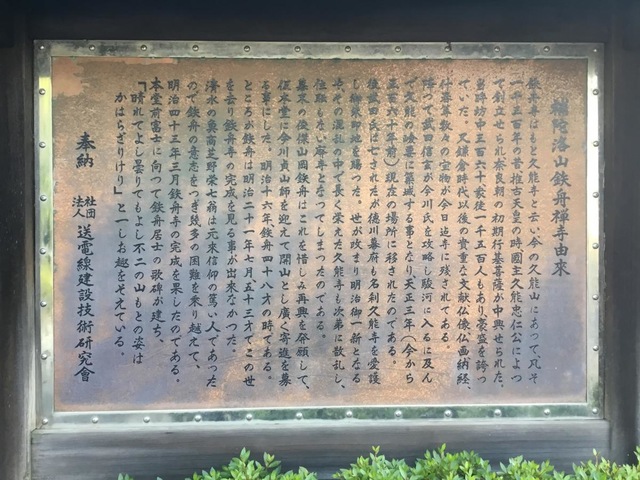 補陀洛山鉄舟禅寺由来
鉄舟寺はもと久能寺と云い今の久能山にあって、凡そ
一千三百年の昔推古天皇の時國主久能忠仁公によっ
て創立せられ奈良朝の初期行基菩薩が中興せられた。
当時坊中三百六十衆徒一千五百人もあり豪盛を誇っ
ていた。又鎌倉時代以後の貴重な文献仏像仏画納経、
行基等数々の宝物が今日迄寺に残されてある。
降って武田信玄が今川氏を攻略し駿河に入るに及ん
で久能寺は喰禀に築城する事となり天正三年(今から
三百六十年前)現在の場所に移されたのである。
後武田氏は亡されたが徳川幕府も名刹久能寺を愛護
し御朱印地を賜った。世が改まり明治御一新となる
や、その混乱の中で長く栄えた久能寺も次第に散乱し、
住職もない廃寺となってしまったのである。
幕末の俊傑山岡鉄舟はこれを惜しみ再興を発願して、
征本堂に今川貞山師を迎えて開山とし廣く寄進を募
る事にした。明治十六年鉄舟四十八才の時である。
ところが鉄舟は明治二十一年七月五十三才でこの世
を去り鉄舟寺の完成を見る事が出来なかった。
清水の奥高芝野栄七翁は元来信仰の篤い人であった
ので鉄舟の意志をつぎ幾多の困難を乗り越えて、
明治四十三年三月鉄舟寺の完成を果したのである。
本堂前富士に向って鉄舟居士の歌碑が建ち、
「晴れてよし曇りてもよし不二の山もとの姿は
かはらざりけり」と一しお趣をそえている。
奉納 社団法人 送電線建設技術研究會